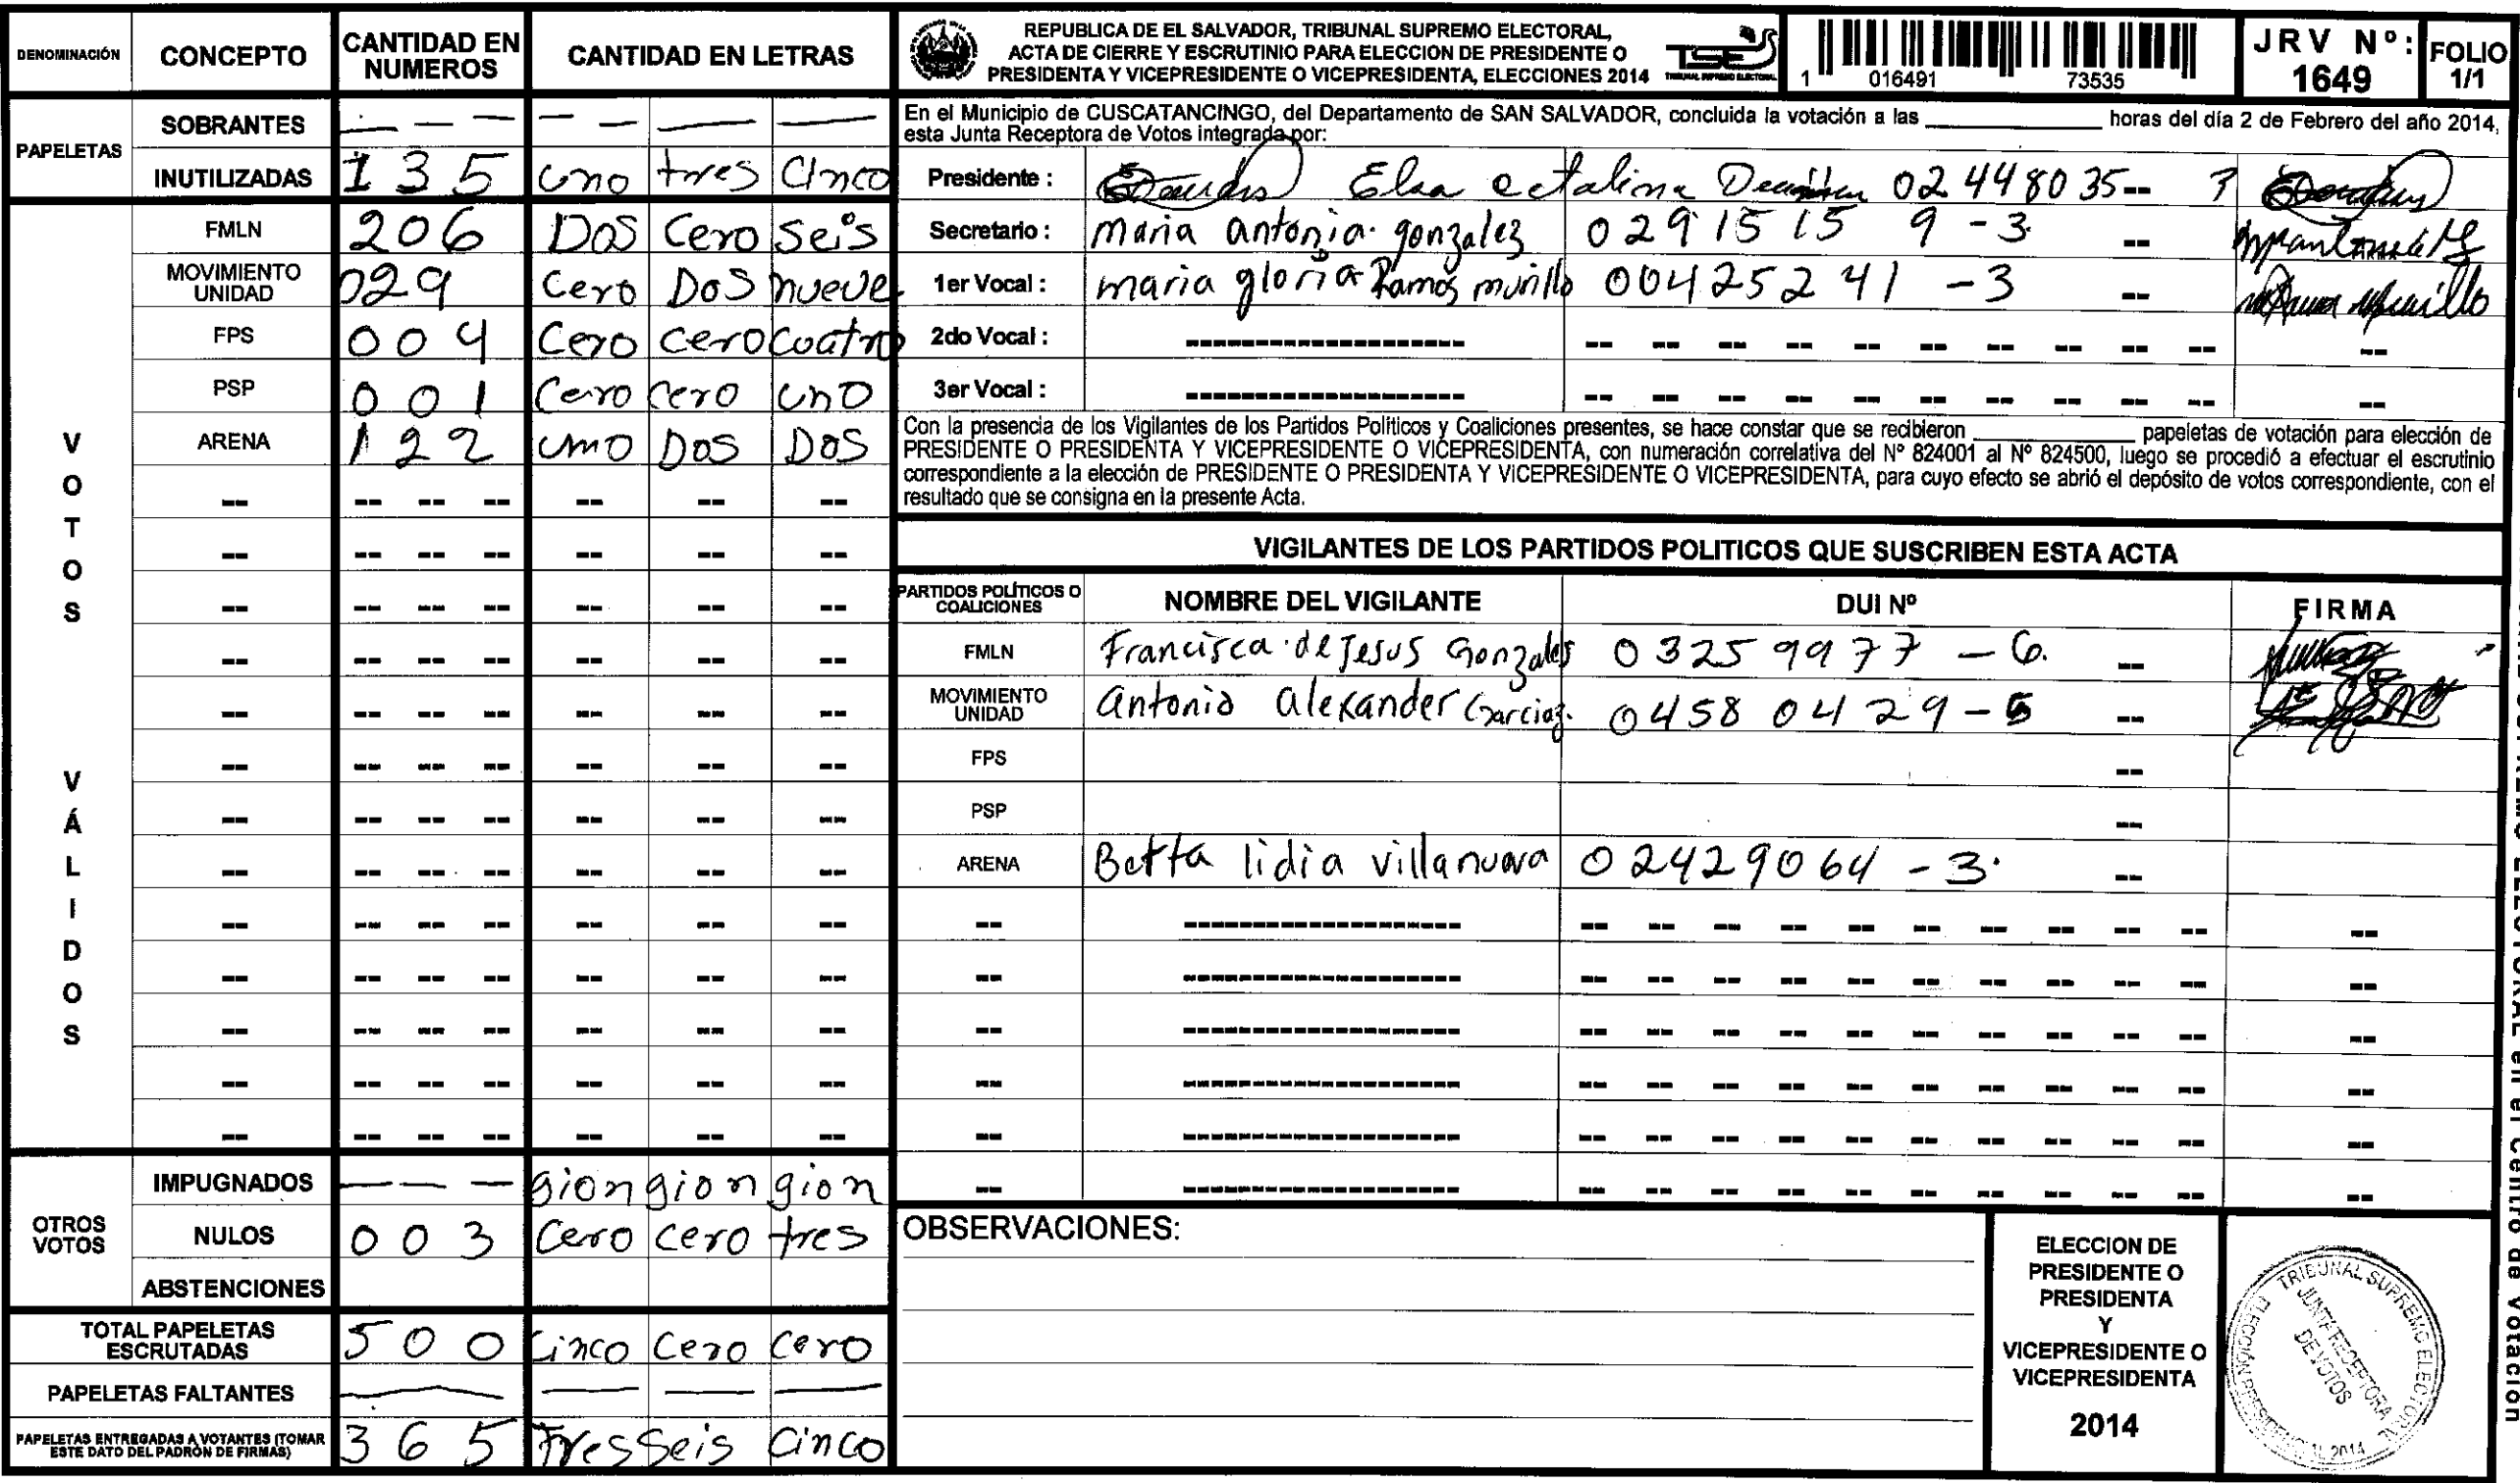 DENOMINACIÓN CONCEPTO CANTIDAD EN NUMEROS CANTIDAD EN LETRAS
PAPELETAS
SOBRANTES — — — — — — —
INUTILIZADAS 1 3 5 uno tres Cinco
VOTOS VÁLIDOS
FMLN 206 Dos Cero Seis
MOVIMIENTO UNIDAD 029 Cero Dos nueve
FPS 0 0 4 Cero cero cuatro
PSP 0 0 1 Cero cero uno
ARENA 1 2 2 uno Dos Dos
OTROS VOTOS
IMPUGNADOS — — — gion gion gion
NULOS 0 0 3 Cero cero tres
ABSTENCIONES
TOTAL PAPELETAS ESCRUTADAS 5 0 0 Cinco Cero Cero
PAPELETAS FALTANTES — — — —
PAPELETAS ENTREGADAS A VOTANTES (TOMAR ESTE DATO DEL PADRÓN DE FIRMAS) 3 6 5 Tres Seis Cinco
REPUBLICA DE EL SALVADOR, TRIBUNAL SUPREMO ELECTORAL,
ACTA DE CIERRE Y ESCRUTINIO PARA ELECCION DE PRESIDENTE O
PRESIDENTA Y VICEPRESIDENTE O VICEPRESIDENTA, ELECCIONES 2014
TSE
TRIBUNAL SUPREMO ELECTORAL
1 016491 73535
JRV Nº: 1649
FOLIO 1/1
En el Municipio de CUSCATANCINGO, del Departamento de SAN SALVADOR, concluida la votación a las ________ horas del día 2 de Febrero del año 2014,
esta Junta Receptora de Votos integrada por:
Presidente : Elsa 02448035-- 7
Secretario : Maria antonia gonzalez 02915159-3 --
1er Vocal : maria gloria Ramos murillo 00425241-3 --
2do Vocal :
3er Vocal :
Con la presencia de los Vigilantes de los Partidos Políticos y Coaliciones presentes, se hace constar que se recibieron ________ papeletas de votación para elección de
PRESIDENTE O PRESIDENTA Y VICEPRESIDENTE O VICEPRESIDENTA, con numeración correlativa del Nº 824001 al Nº 824500, luego se procedió a efectuar el escrutinio
correspondiente a la elección de PRESIDENTE O PRESIDENTA Y VICEPRESIDENTE O VICEPRESIDENTA, para cuyo efecto se abrió el depósito de votos correspondiente, con el
resultado que se consigna en la presente Acta.
VIGILANTES DE LOS PARTIDOS POLITICOS QUE SUSCRIBEN ESTA ACTA
PARTIDOS POLÍTICOS O COALICIONES NOMBRE DEL VIGILANTE DUI Nº FIRMA
FMLN Francisca de Jesus Gonzales 03259977-6. --
MOVIMIENTO UNIDAD Antonio Alexander 04580429- --
FPS --
PSP --
ARENA Betta lidia villanueva 02429064-3. --
OBSERVACIONES:
ELECCION DE
PRESIDENTE O
PRESIDENTA
Y
VICEPRESIDENTE O
VICEPRESIDENTA
2014
TRIBUNAL SUPREMO ELECTORAL
JUNTA RECEPTORA
DE VOTOS
en el Centro de Votación